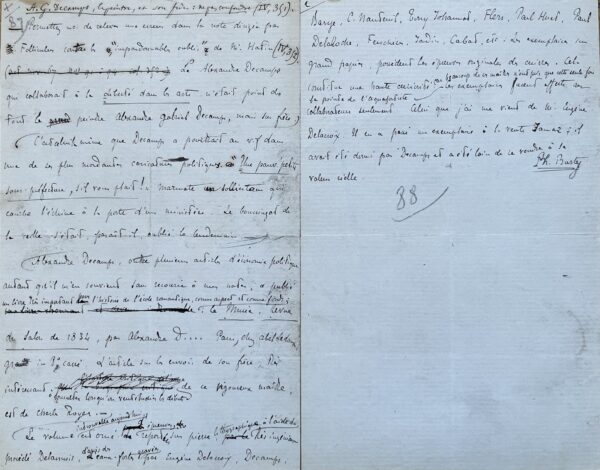 X A. G. Decamps, le peintre, et son frère : ne pas confondre (IV, 351).
87 Permettez-moi de relever une erreur dans la note dirigée par
Folliculus contre la "impardonnable oubli" de M. Hatin (IV,
Le Alexandre Decamps
qui collaborait à la Liberté dans les arts, n'était point du
tout le peintre Alexandre Gabriel Decamps, mais son frère.
C'est celui même que Decamps a pourtrait au vif dans
une de ses plus mordantes caricatures politiques : "Une pauvre petite
sous-préfecture, s'il vous plaît !" marmote un solliciteur qui
courbe l'échine à la porte d'un ministère. Le
la veille s'était, paraît-il, oublié le lendemain.
Alexandre Decamps, outre plusieurs articles d'économie politique
autant qu'il m'en souvient sans recourir à mes notes, a publié
un livre très important pour l'histoire de l'école romantique, comme aspect et comme fonds :
le Musée, revue
du Salon de 1834, par Alexandre D.... Paris, chez
gr in 8° carré. L'article sur les envois de son frère, très
intéressant,
de ce vigoureux maître,
est de Charles Royer. —
Le volume est orné de reports sur pierre
procédé Delaunois, d'après des eaux-fortes gravées par Eugène Delacroix, Decamps,
Barye, C. Nanteuil, Tony Johannot, Flers, Paul Huet, Paul
Delaroche, Feuchère, Jadin, Cabat, etc. Les exemplaires sur
grand papier, possèdent les épreuves originales des cuivres. Cela
constitue une haute curiosité, car beaucoup de ces maîtres n'ont que cette seule fois
la pointe de l'aquafortiste. Ces exemplaires furent offerts aux
collaborateurs seulement. Celui que j'ai me vient de M. Eugène
Delacroix. Il en a passé un exemplaire à la vente ; il
avait été donné par Decamps et a été loin de se vendre à sa
valeur réelle.
Ph. Burty
88